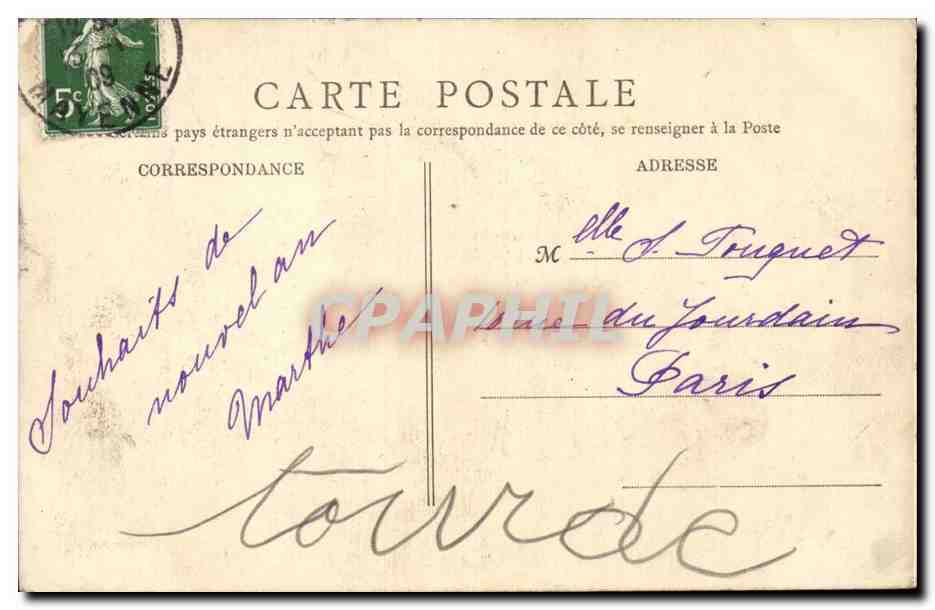 5c
09
MAYENNE
CARTE POSTALE
pays étrangers n'acceptant pas la correspondance de ce côté, se renseigner à la Poste
CORRESPONDANCE
ADRESSE
Souhaits de
nouvel an
Marthe
Melle S. Fouquet
rue du Jourdain
Paris
CPAPHIL